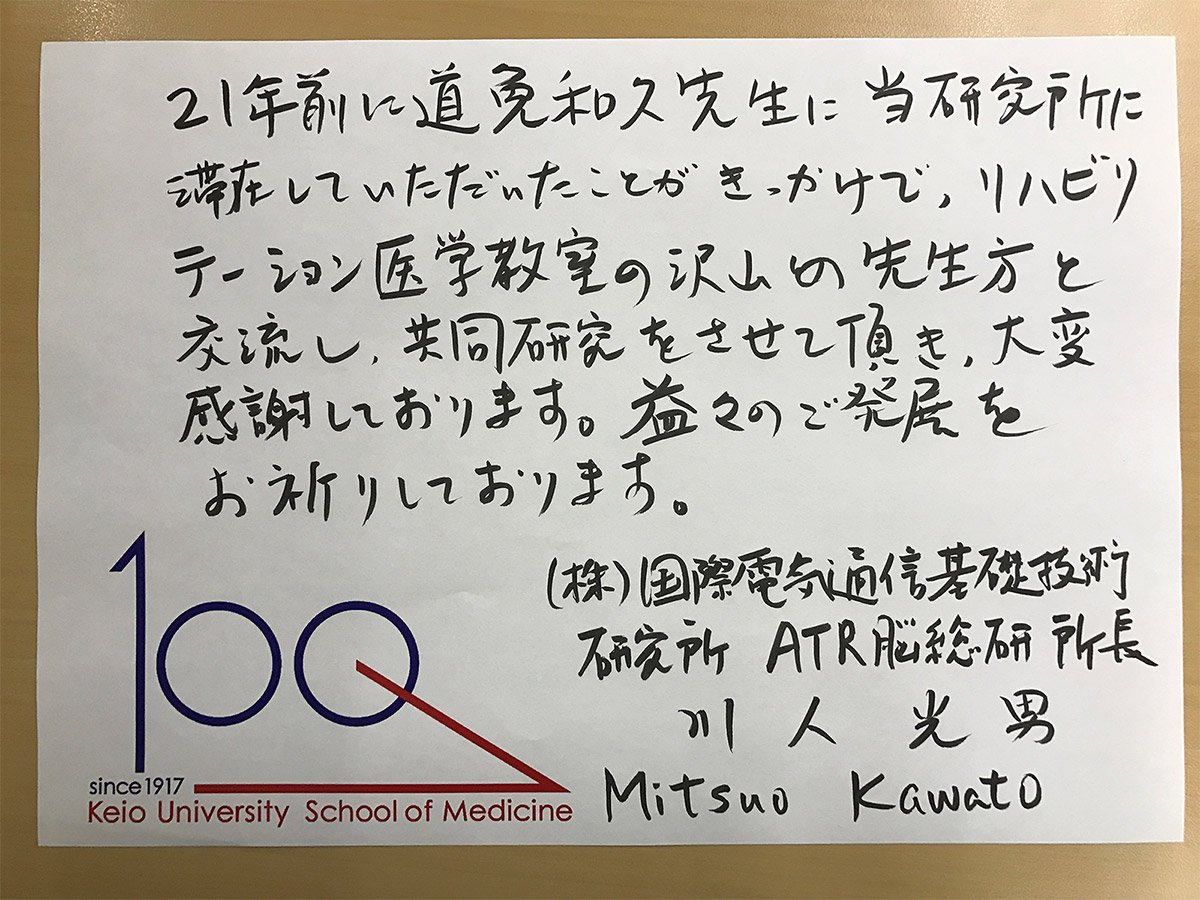 21年前に道免和久先生に当研究所に
滞在していただいたことがきっかけで、リハビリ
テーション医学教室の沢山の先生方と
交流し、共同研究をさせて頂き、大変
感謝しております。益々のご発展を
お祈りしております。
(株)国際電気通信基礎技術
研究所 ATR脳総研所長
川人光男
Mitsuo Kawato
100
since1917
Keio University School of Medicine